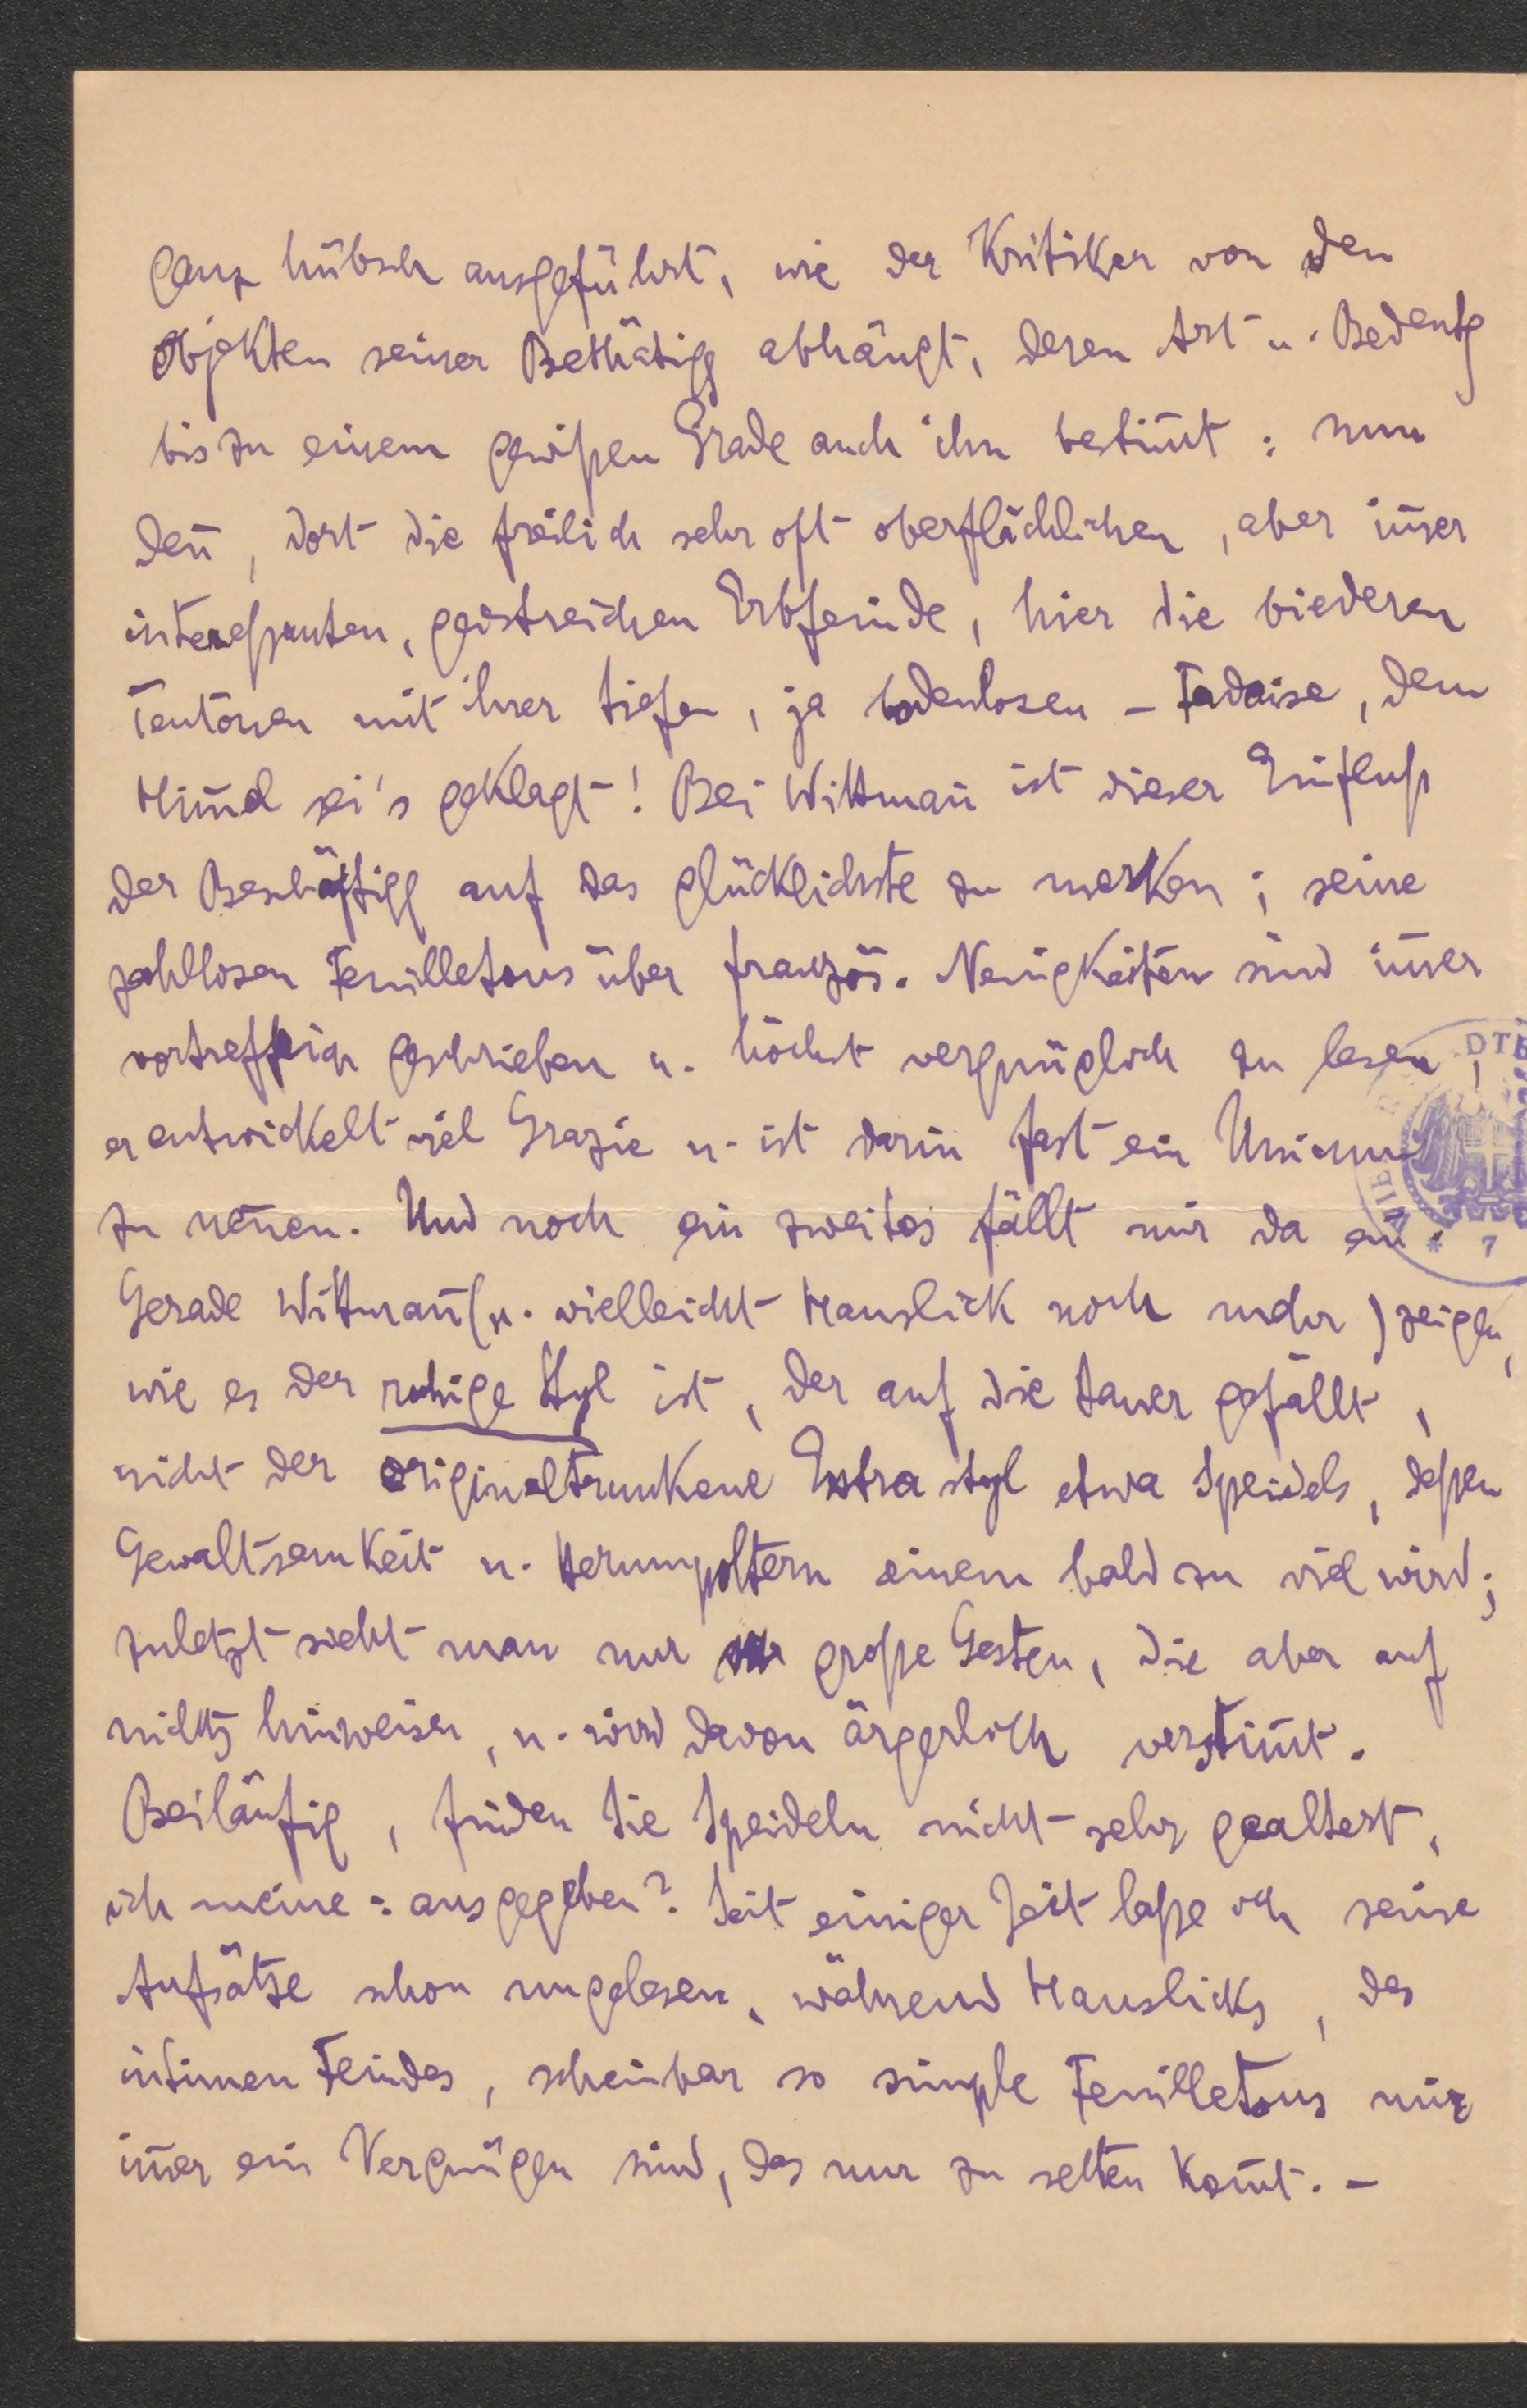 ganz hübsch ausgeführt, wie der Kritiker von den
Objekten seiner Bethätigg abhängt, deren Art u. Bedeutg
bis zu einem gewißen Grade auch ihn bestim̄t: nun
den̄, dort die freilich sehr oft oberflächlichen, aber im̄er
intereßanten, geistreichen Erbfeinde, hier die biederen
Teutonen mit ihrer tiefen, ja bodenlosen – Fadaise, dem
Him̄el sei's geklagt! Bei Wittman̄ ist dieser Einfluß
der Beschäftigg auf das glücklichste zu merken; seine
zahllosen Feuilletons über französ. Neuigkeiten sind im̄er
vortrefflich geschrieben u. höchst vergnüglich zu lesen;
er entwickelt viel Grazie u. ist darin fast ein Unicum
zu nen̄en. Und noch ein zweites fällt mir da ein.
Gerade Wittman̄ (u. vielleicht Hanslick noch mehr) zeigen,
wie es der ruhige Styl ist, der auf die Dauer gefällt,
nicht der originaltrunkene Extrastyl etwa Speidels, deßen
Gewaltsamkeit u. Herumpoltern einem bald zu viel wird;
zuletzt sieht man nur große Gesten, die aber auf
nichts hinweisen, u. wird davon ärgerlich verstim̄t.
Beiläufig, finden Sie Speideln nicht sehr gealtert,
ich meine: ausgegeben? Seit einiger Zeit laße ich seine
Aufsätze schon ungelesen, während Hanslicks, des
intimen Feindes, scheinbar so simple Feuilletons mir
im̄er ein Vergnügen sind, das nur zu selten kom̄t. –
DTB
WIE
* 7